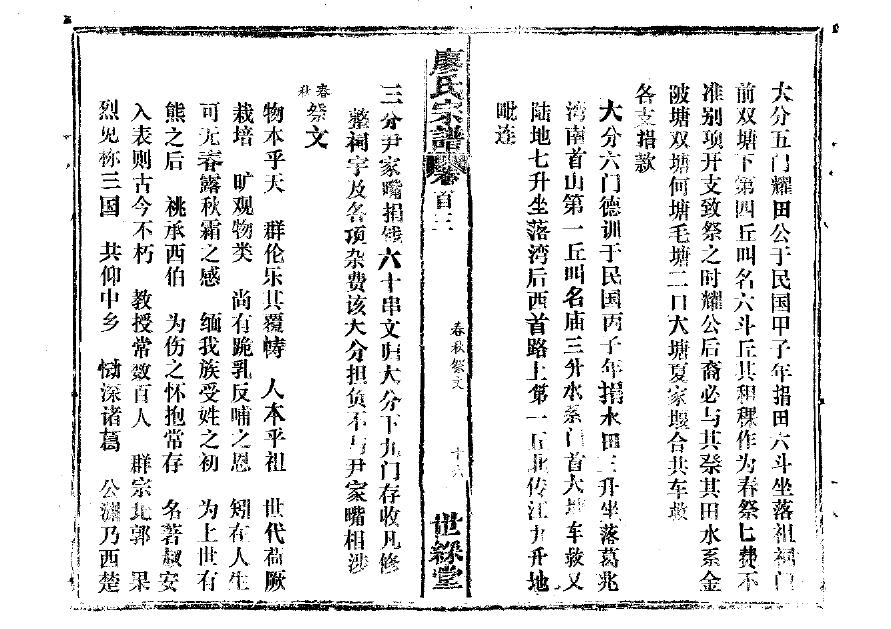 大分五门耀田公于民国甲子年捐田六斗坐落祖祠门
前双塘下第四丘叫名六斗丘其租稞作为春祭七费不
准别项开支致祭之时耀公后裔必与其祭其田水系金
陂塘双塘何塘毛塘二口大塘夏家堰合共车救
各支捐款
大分六门德训于民国丙子年捐水田三升坐落葛兆
湾南首山第一丘叫名庙三升水系门首大塘车救又
陆地七升坐落湾后西首路上第一丘北传江九升地
毗连
廖氏宗譜
卷首三
春秋祭文
十六
世綵堂
三分尹家嘴捐钱六十串文归大分下九门存收凡修
整祠宇及各项杂费该大分担负不与尹家嘴相涉
春秋祭文
物本乎天 群伦乐其覆帱 人本乎祖 世代荷厥
栽培 旷观物类 尚有跪乳反哺之恩 矧在人生
可无春露秋霜之感 缅我族受姓之初 为上世有
熊之后 祧承西伯 为伤之怀抱常存 名著叔安
入表则古今不朽 教授常数百人 群宗北郭 果
烈见称三国 共仰中乡 恸深诸葛 公渊乃西楚